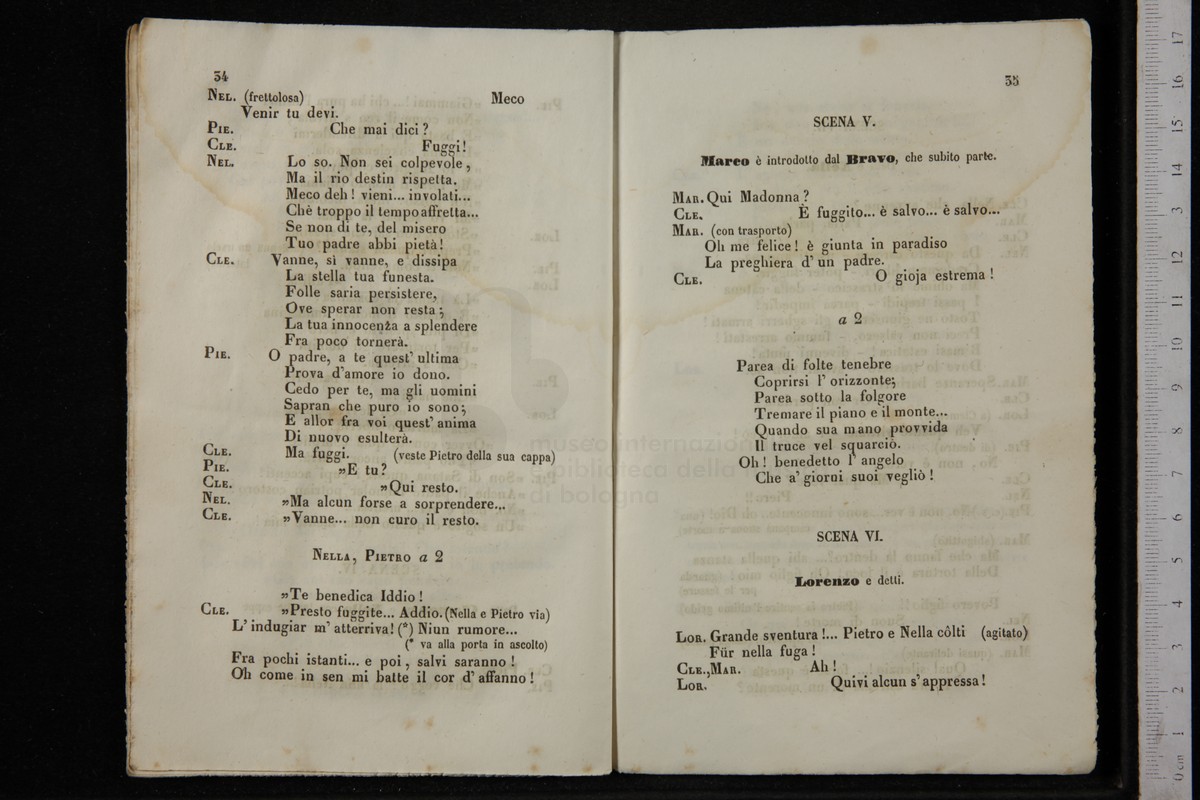 34
NEL. (frettolosa) Meco
Venir tu devi.
PIE. Che mai dici?
CLE. Fuggi!
NEL. Lo so. Non sei colpevole,
Ma il rio destin rispetta.
Meco deh! vieni... involati...
Chè troppo il tempo affretta...
Se non di te, del misero
Tuo padre abbi pietà!
CLE. Vanne, sì vanne, e dissipa
La stella tua funesta.
Folle saria persistere,
Ove sperar non resta;
La tua innocenza a splendere
Fra poco tornerà.
PIE. O padre, a te quest' ultima
Prova d'amore io dono.
Cedo per te, ma gli uomini
Sapran che puro io sono;
E allor fra voi quest' anima
Di nuovo esulterà.
CLE. Ma fuggi. (veste Pietro della sua cappa)
PIE. »E tu?
CLE. »Qui resto.
NEL. »Ma alcun forse a sorprendere...
CLE. »Vanne... non curo il resto.
NELLA, PIETRO a 2
»Te benedica Iddio!
CLE. »Presto fuggite... Addio. (Nella e Pietro via)
L' indugiar m' atterriva! (*) Niun rumore...
(* va alla porta in ascolto)
Fra pochi istanti... e poi, salvi saranno!
Oh come in sen mi batte il cor d' affanno!
35
SCENA V.
Marco è introdotto dal Bravo, che subito parte.
MAR. Qui Madonna?
CLE. È fuggito... è salvo... è salvo...
MAR. (con trasporto)
Oh me felice! è giunta in paradiso
La preghiera d' un padre.
CLE. O gioja estrema!
a 2
Parea di folte tenebre
Coprirsi l' orizzonte;
Parea sotto la folgore
Tremare il piano e il monte...
Quando sua mano provvida
Il truce vel squarciò.
Oh! benedetto l' angelo
Che a' giorni suoi vegliò!
SCENA VI.
Lorenzo e detti.
LOR. Grande sventura!... Pietro e Nella côlti (agitato)
Für nella fuga!
CLE., MAR. Ah!
LOR. Quivi alcun s' appressa!
museo internazionale
e biblioteca della musica
di bologna